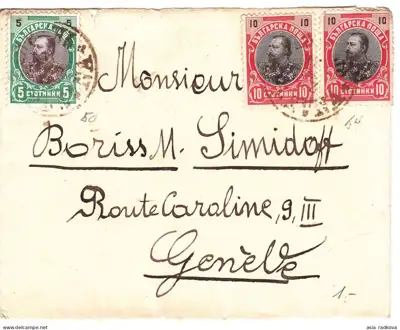 5 БЪЛГАРСКА ПОЩА 5
5 СТОТИНКИ 5
10 БЪЛГАРСКА ПОЩА 10
10 СТОТИНКИ 10
10 БЪЛГАРСКА ПОЩА 10
10 СТОТИНКИ 10
Monsieur
Boriss M. Simidoff
Route Caroline, 9, III
Genève
1.-
asia radkova